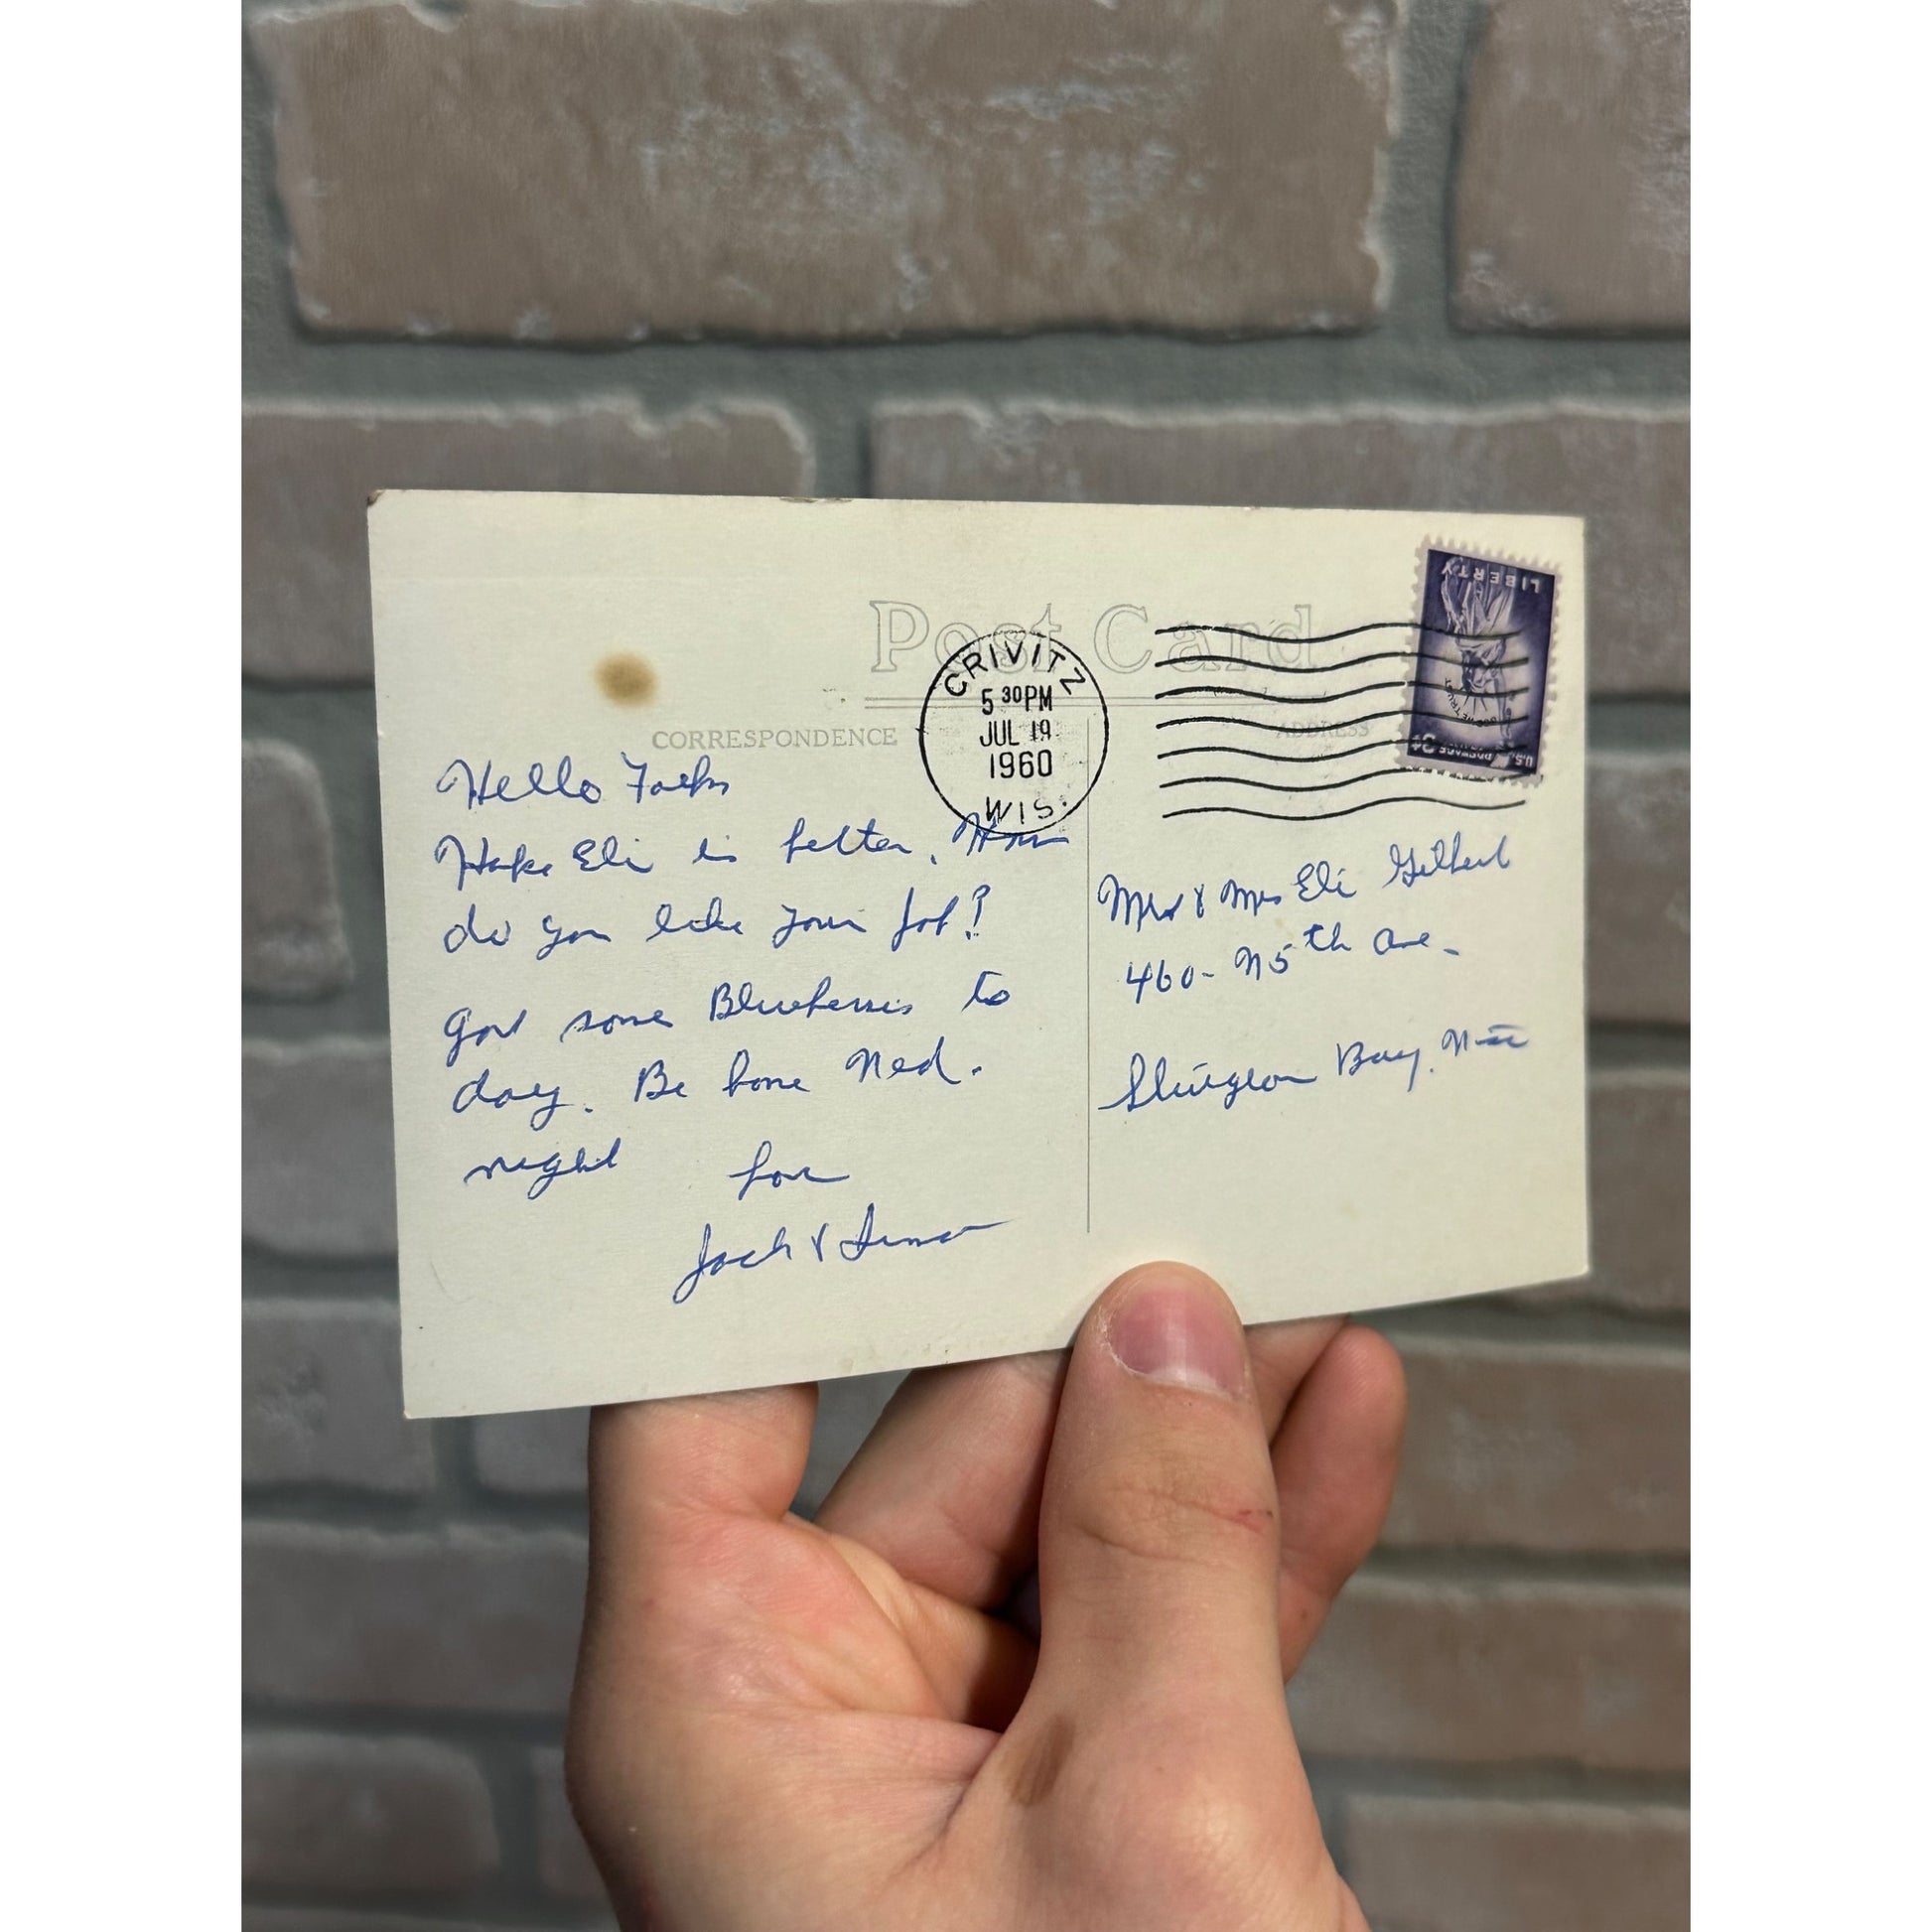 Post Card
CORRESPONDENCE
ADDRESS
CRIVITZ
5 30PM
JUL 19
1960
WIS.
LIBERTY
IN GOD WE TRUST
U.S. POSTAGE 3¢
Hello Folks
Hope Eli is better. How
do you like your job?
Got some Blueberries to
day. Be home Wed.
night Love
Jack &
Mr & Mrs Eli Gilbert
460- N 5th Ave.
Sturgeon Bay, Wis